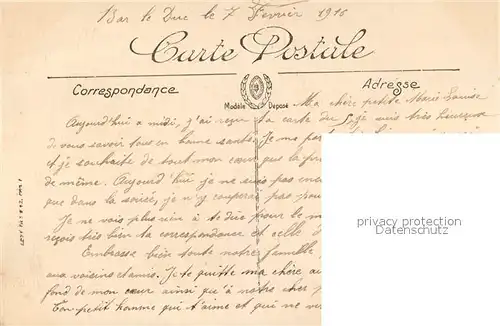 Bar le Duc le 7 Février 1916
Carte Postale
Correspondance
Adresse
Modèle Déposé
Ma chère petite Marie Louise
Aujourd'hui a midi, j'ai reçu ta carte du 5, je suis très heureux
de vous savoir tous en bonne santé. Je me
et je souhaite de tout mon cœur que la
de même. Aujourd'hui je ne suis pas
que dans la soirée, je n'y couperai pas pour
Je ne vois plus rien à te dire pour le
reçois très bien ta correspondance et celle
Embrasse bien toute notre famille
aux voisins et amis. Je te quitte ma chère
fond de mon cœur ainsi qu'à notre cher
Ton petit homme qui t'aime et qui ne
privacy protection
www.oldthing.de